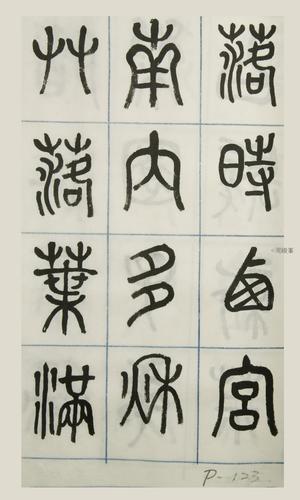 落時西宮
南内多秋
艸落葉滿
P-123